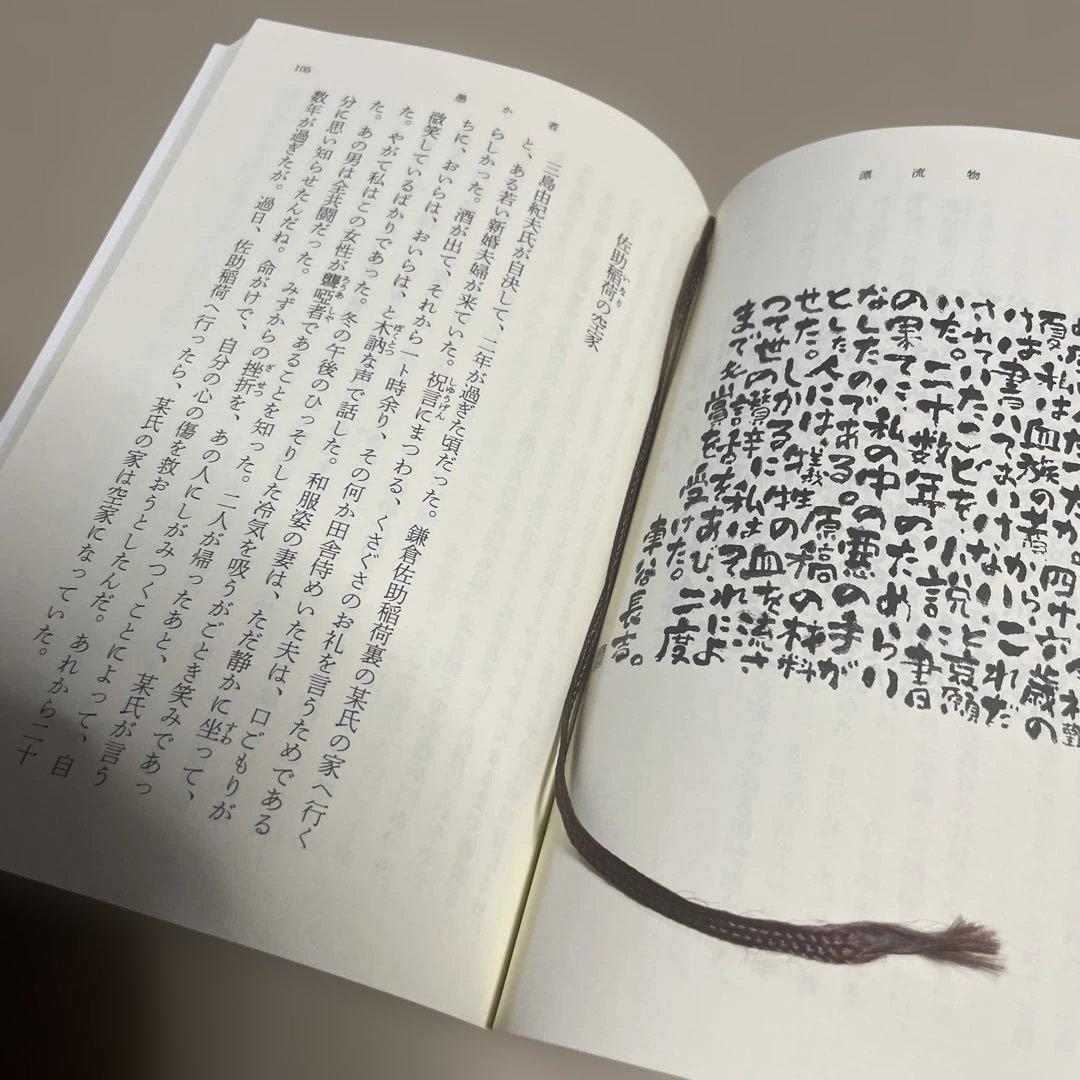 漂流物
四十六歳の
夏、私は血族の者から、これだ
けは書いてはいけない、と哀願
されていたことを小説に書
いた。二十数年のためらい
の果てに、私の中の悪の手が
なしたのである。原稿の材料
とした人には、犠牲の血を流さ
せた。しかるに私はそれによ
つて世の讃辞をあび、二度
まで賞を受けた。
車谷長吉。
愚か者
105
佐助稲荷の空家
三島由紀夫氏が自決して、二年が過ぎた頃だった。鎌倉佐助稲荷裏の某氏の家へ行く
と、ある若い新婚夫婦が来ていた。祝言にまつわる、くさぐさのお礼を言うためである
らしかった。酒が出て、それから一ト時余り、その何か田舎侍めいた夫は、口ごもりが
ちに、おいらは、おいらは、と木訥な声で話した。和服姿の妻は、ただ静かに坐って、
微笑しているばかりであった。冬の午後のひっそりした冷気を吸うがごとき笑みであっ
た。やがて私はこの女性が聾啞者であることを知った。二人が帰ったあと、某氏が言う
た。あの男は全共闘だった。みずからの挫折を、あの人にしがみつくことによって、自
分に思い知らせたんだね。命がけで、自分の心の傷を救おうとしたんだ。あれから二十
数年が過ぎたが。過日、佐助稲荷へ行ったら、某氏の家は空家になっていた。